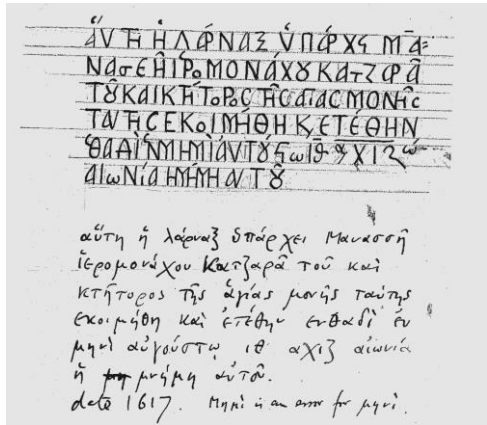 ἅΥΤΗ Ἡ ΛΆΡΝΑΞ ὙΠΆΡΧϚ Μᾶ=
ΝΑσΕ ἩΙΡοΜΟΝΆΧȣ ΚΑΤΖΑΡᾶ
Τȣ ΚΑΙ ΚΤΉΤοΡοϹ ΤῆϹ ἁΓίΑϹ ΜΟΝῆϹ
ΤΑΥΤΗϹ ΕΚοΙΜΉΘΗ Κ ΕΤΈΘΗΝ
ΜΗΜΙ
ΑΙωΝίΑ Η ΜΗΜΗ ΑΥΤȣ
αὕτη ἡ λάρναξ ὑπάρχει Μανασσῆ
ἱερομονάχου Κατζαρᾶ τοῦ καὶ
κτήτορος τῆς ἁγίας μονῆς ταύτης
εκοιμήθη καὶ ἐτέθην ενθαδὶ ἐν
μηνὶ αὐγούστῳ ιθ αχιζ αἰωνία
ἡ μνήμη αὐτοῦ.
date 1617. Μημὶ is an error for μηνὶ.